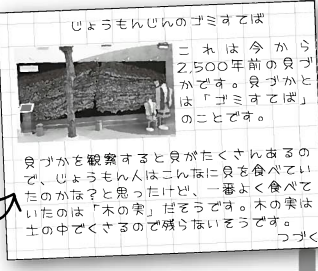 じょうもんじんのゴミすてば
これは今から
2,500年前の貝づ
かです。貝づかと
は「ゴミすてば」
のことです。
貝づかを観察すると貝がたくさんあるの
で、じょうもん人はこんなに貝を食べてい
たのかな？と思ったけど、一番よく食べて
いたのは「木の実」だそうです。木の実は
土の中でくさるので残らないそうです。
つづく